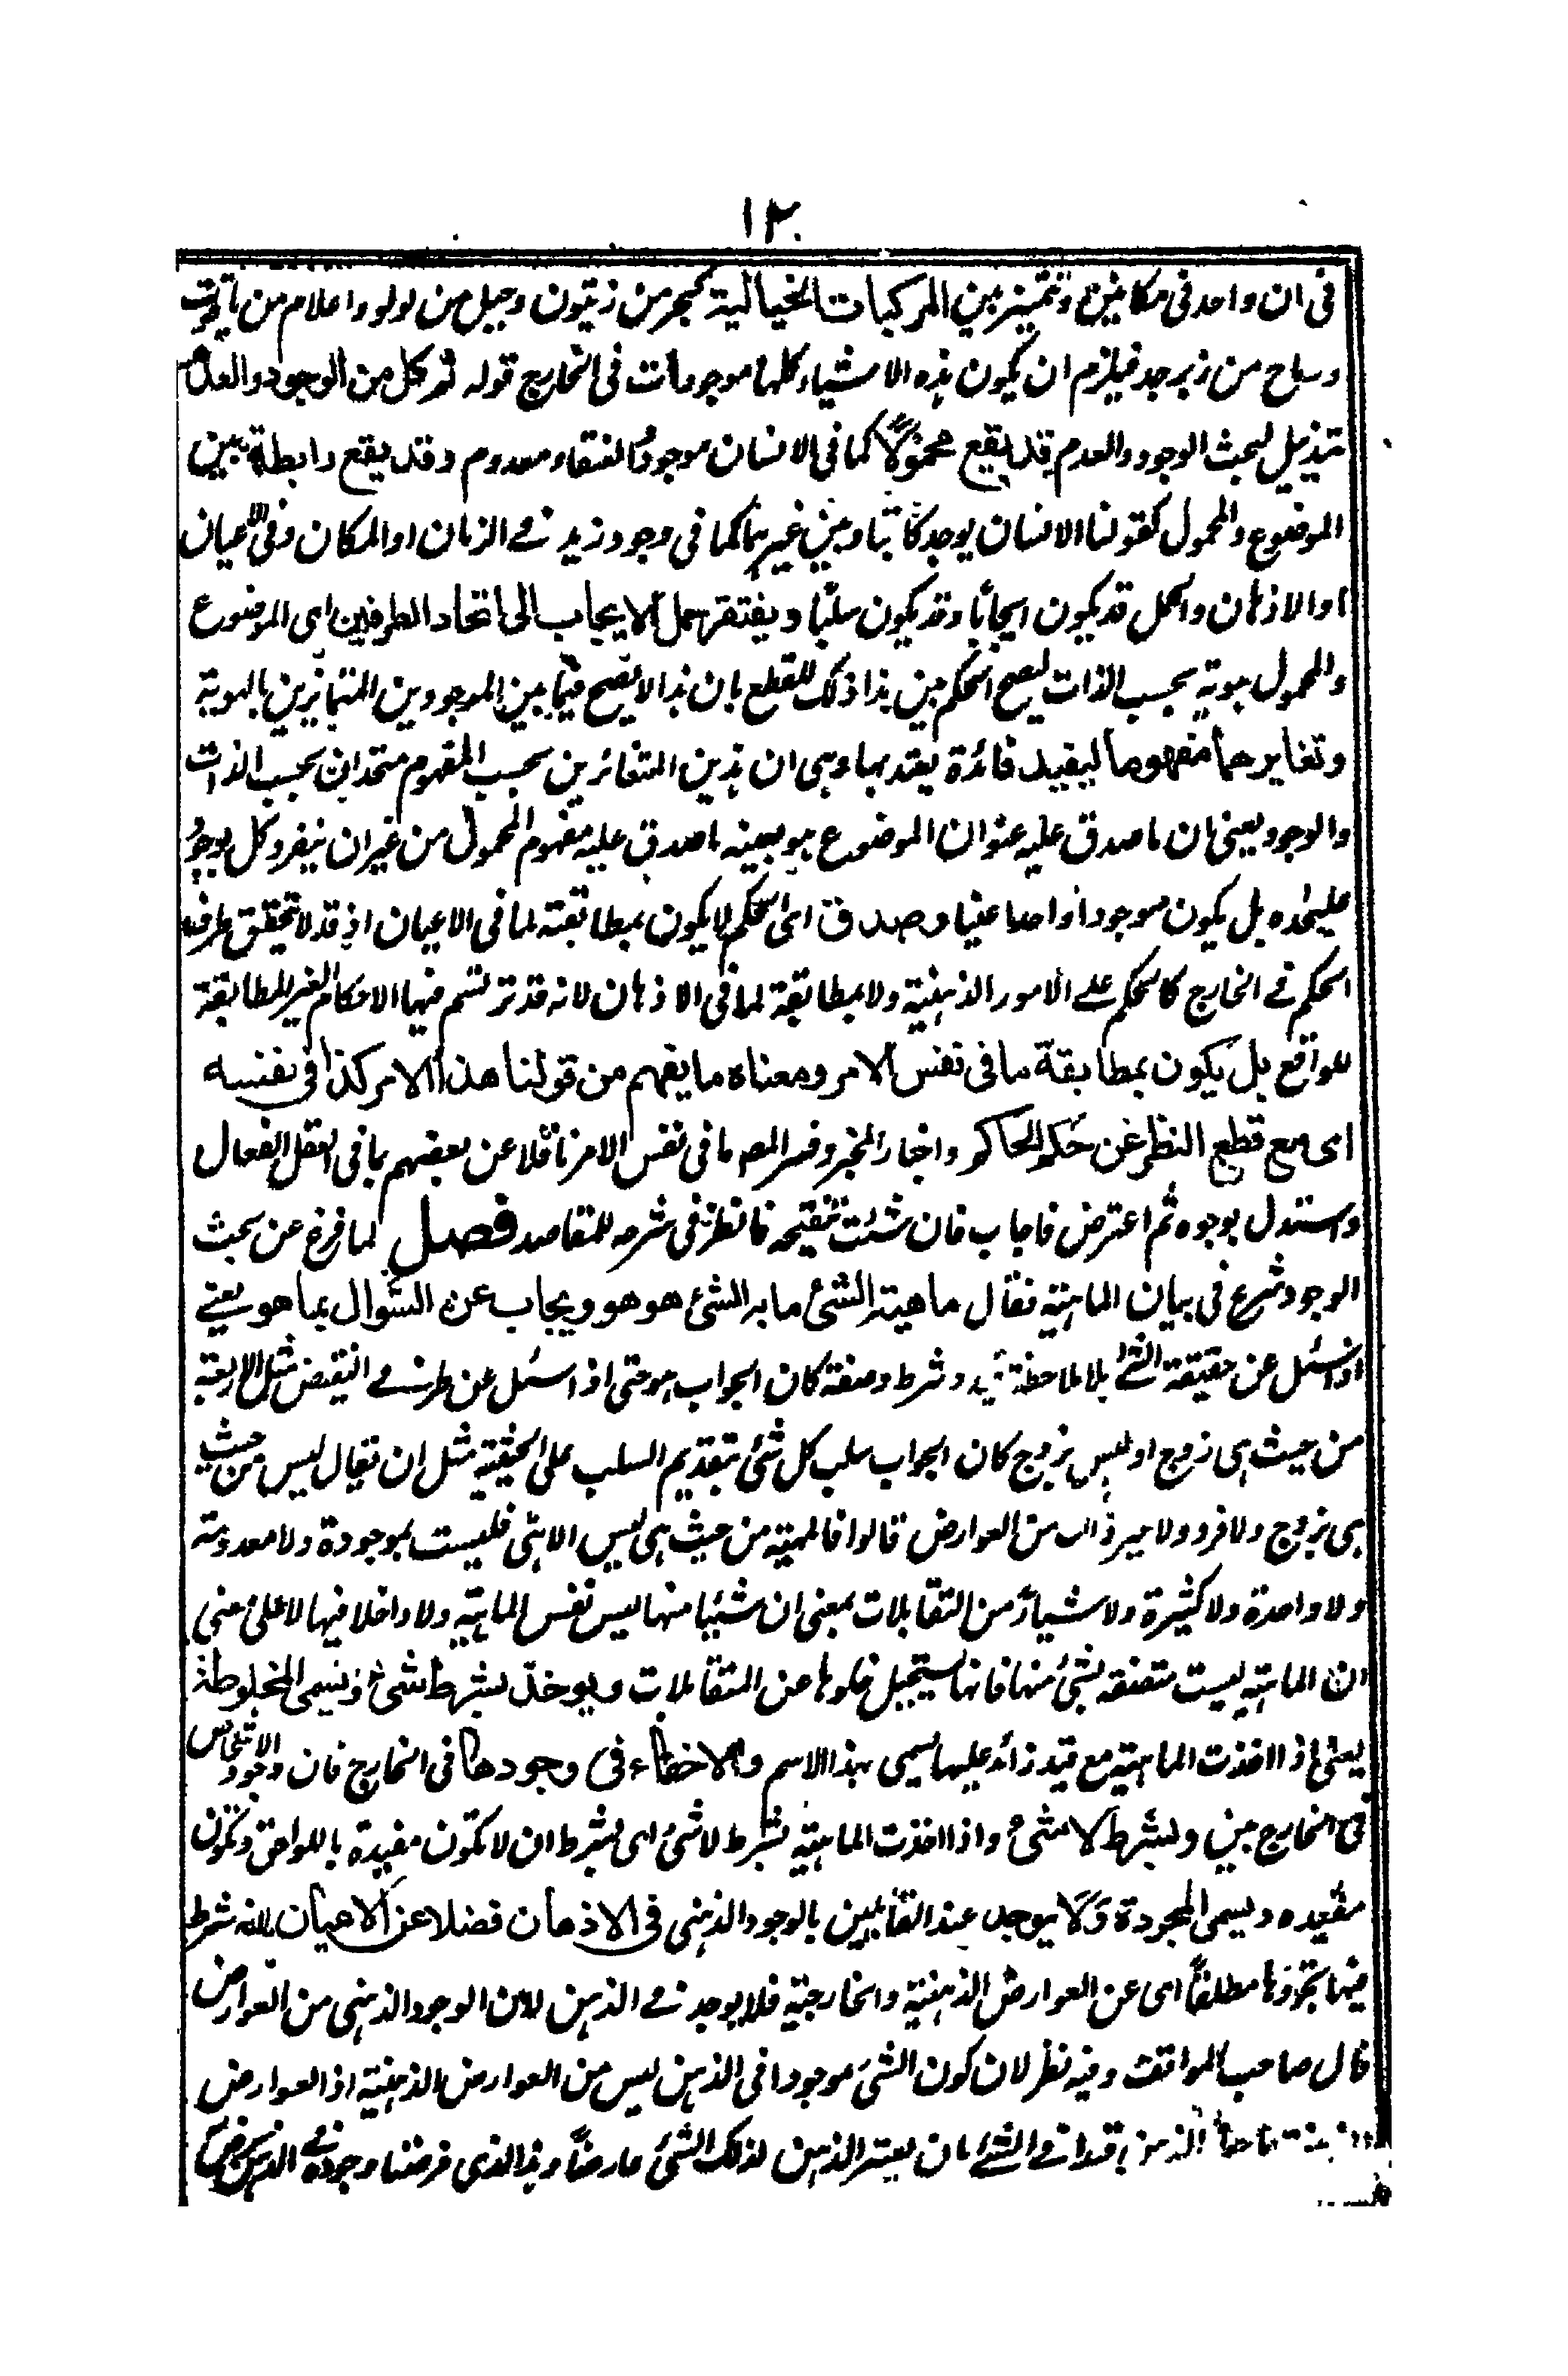 ١٢
فى ان واحد فى مكانين وتتميز بين المركبات الخيالية كبحر من زيتون وجبل من لولو واعلام من ياقوت
ورماح من زبرجد فيلزم ان يكون هذه الاشياء كلها موجودات فى الخارج قوله ثم كل من الوجود والعدم
تذييل لبحث الوجود والعدم قد يقع محمولًا كما فى الانسان موجود والعنقاء معدوم وقد يقع رابطة بين
الموضوع والمحمول كقولنا الانسان يوجد كاتبا وبين غيرهما كما فى وجود زيد فى الزمان او المكان وفى الاعيان
او الاذهان والحمل قد يكون ايجابًا وقد يكون سلبًا ويفتقر حمل الايجاب الى اتحاد الطرفين اى الموضوع
والمحمول هوية بحسب الذات ليصح الحكم بين هذا ذلك للقطع بان هذا لا يصح فيما بين الموجودين المتمايزين بالهوية
وتغايرهما مفهوما ليفيد فائدة يعتد بها وهى ان هذين المتغائرين بحسب المفهوم متحدان بحسب الذات
والوجود يعنى ان ما صدق عليه عنوان الموضوع هو بعينه ما صدق عليه مفهوم المحمول من غير ان ينفرد كل بوجود
عليحده بل يكون موجودا واحدا عينا وصدق اى الحكم لا يكون بمطابقته لما فى الاعيان اذ قد لا تحقق طرفى
الحكم فى الخارج كالحكم على الامور الذهنية ولا بمطابقة لما فى الاذهان لانه قد ترتسم فيها الاحكام الغير المطابقة
للواقع بل يكون بمطابقة ما فى نفس الامر ومعناه ما يفهم من قولنا هذا الامر كذا فى نفسه
اى مع قطع النظر عن حكم الحاكم واخبار المخبر وفسر المص ما فى نفس الامر ناقلا عن بعضهم بما فى العقل الفعال
واستدل بوجوه ثم اعترض فاجاب فان شئت تنقيحه فانظر فى شرحه للمقاصد فصل لما فرغ عن بحث
الوجود شرع فى بيان الماهية فقال ماهية الشئ ما به الشئ هو هو ويجاب عن السؤال بما هو يعنى
اذا سئل عن حقيقة الشئ بلا ملاحظة قيد وشرط وصفة كان الجواب هو حتى اذا سئل عن طرفى النقيض مثل الاربعة
من حيث هى زوج او ليس بزوج كان الجواب سلب كل شئ بتقديم السلب على الحيثية مثل ان يقال ليس من حيث
هى بزوج ولا فرد ولا غير ذلك من العوارض قالوا فالمهية من حيث هى ليس الا هى فليست بموجودة ولا معدومة
ولا واحدة ولا كثيرة ولا شيئا من المتقابلات بمعنى ان شيئا منها ليس نفس الماهية ولا داخلا فيها لا على معنى
ان الماهية ليست متصفة بشئ منها فانها يستحيل خلوها عن المتقابلات ويوخذ بشرط شئ وتسمى المخلوطة
يعنى اذا اخذت الماهية مع قيد زائد عليها يسمى بهذا الاسم ولا خفاء فى وجودها فى الخارج فان وجود الاشخاص
فى الخارج بين وبشرط لا شئ واذا اخذت الماهية بشرط لا شئ اى بشرط ان لا تكون مقيدة باللواحق وتكون
مقيده ويسمى المجردة ولا يوجد عند القائلين بالوجود الذهنى فى الاذهان فضلا عن الاعيان لانه شرط
فيها تجردها مطلقًا اى عن العوارض الذهنية والخارجية فلا يوجد فى الذهن لان الوجود الذهنى من العوارض
قال صاحب المواقف وفيه نظر لان كون الشئ موجودا فى الذهن ليس من العوارض الذهنية اذ العوارض
الذهنية ما جعله الذهن قيدا فى الشئ بان يعتبر الذهن لذلك الشئ عارضًا وهذا الذى فرضنا وجوده فى الذهن